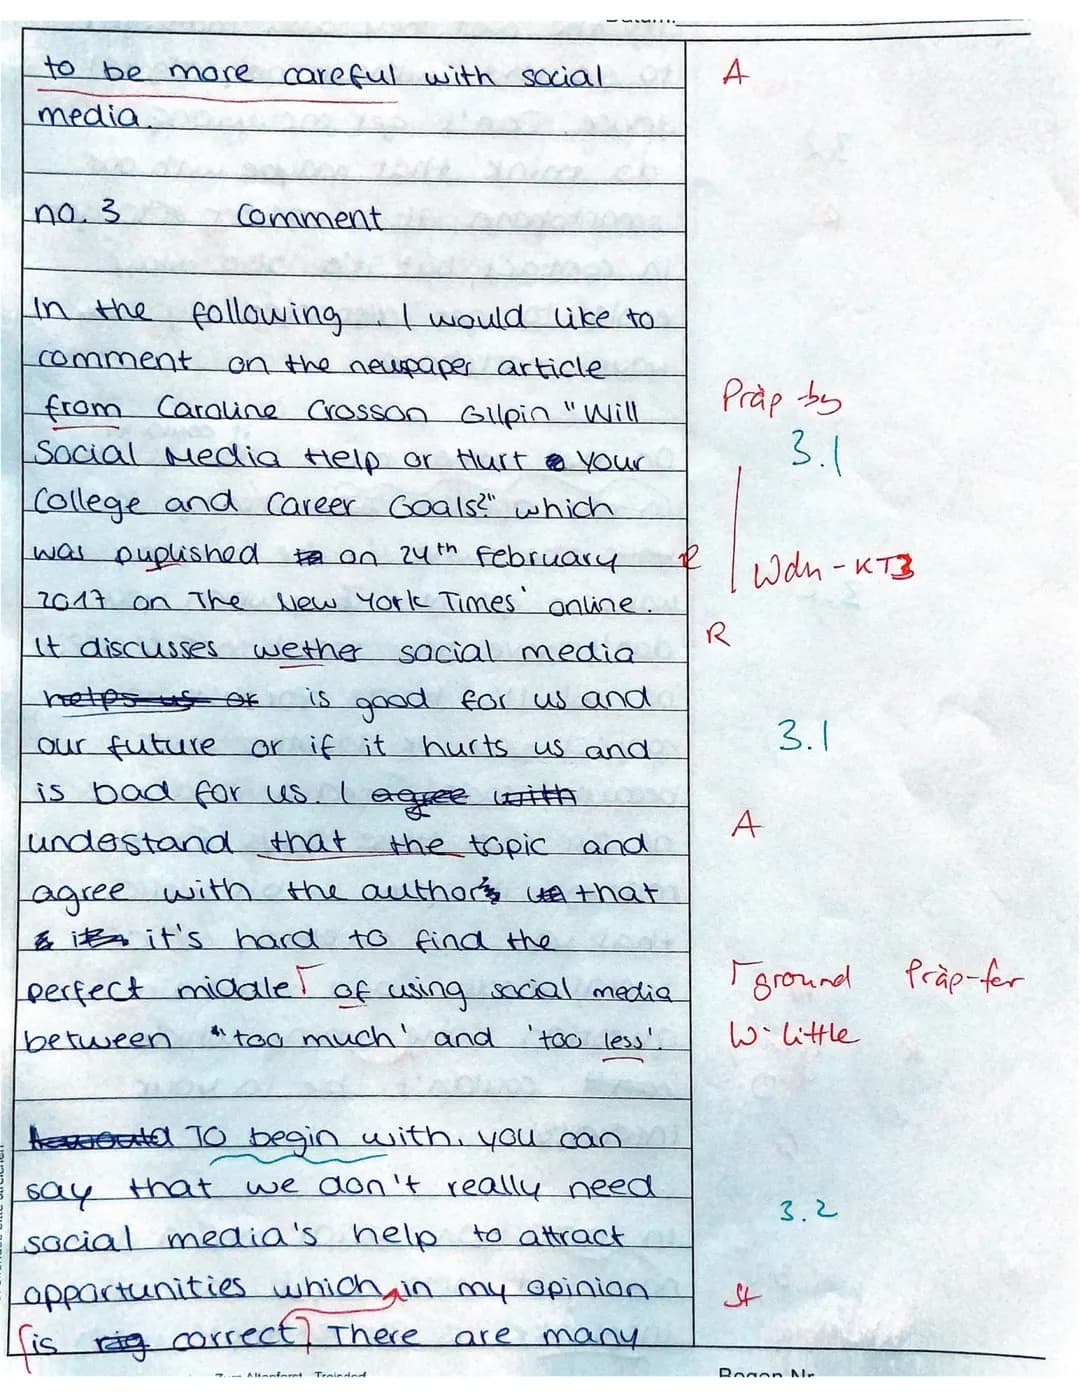 to be more careful with social A
media.
no. 3 Comment
In the following, I would like to
comment on the newpaper article
from Caroline Crosson Gilpin "Will Präp by
Social Media Help or Hurt your 3.1
College and Career Goals?" which
was puplished on 24th February R Wdh - KT3
2017 on The New York Times' online.
It discusses wether social media R
helps us or is good for us and
our future or if it hurts us and 3.1
is bad for us. I agree with
undestand that the topic and A
agree with the author that
it's hard to find the
perfect middle of using social media ground Präp-for
between "too much' and 'too less'. W: little
To begin with, you can
say that we don't really need
social media's help to attract 3.2
opportunities which in my opinion St
is correct. There are many
Bogen Nr.